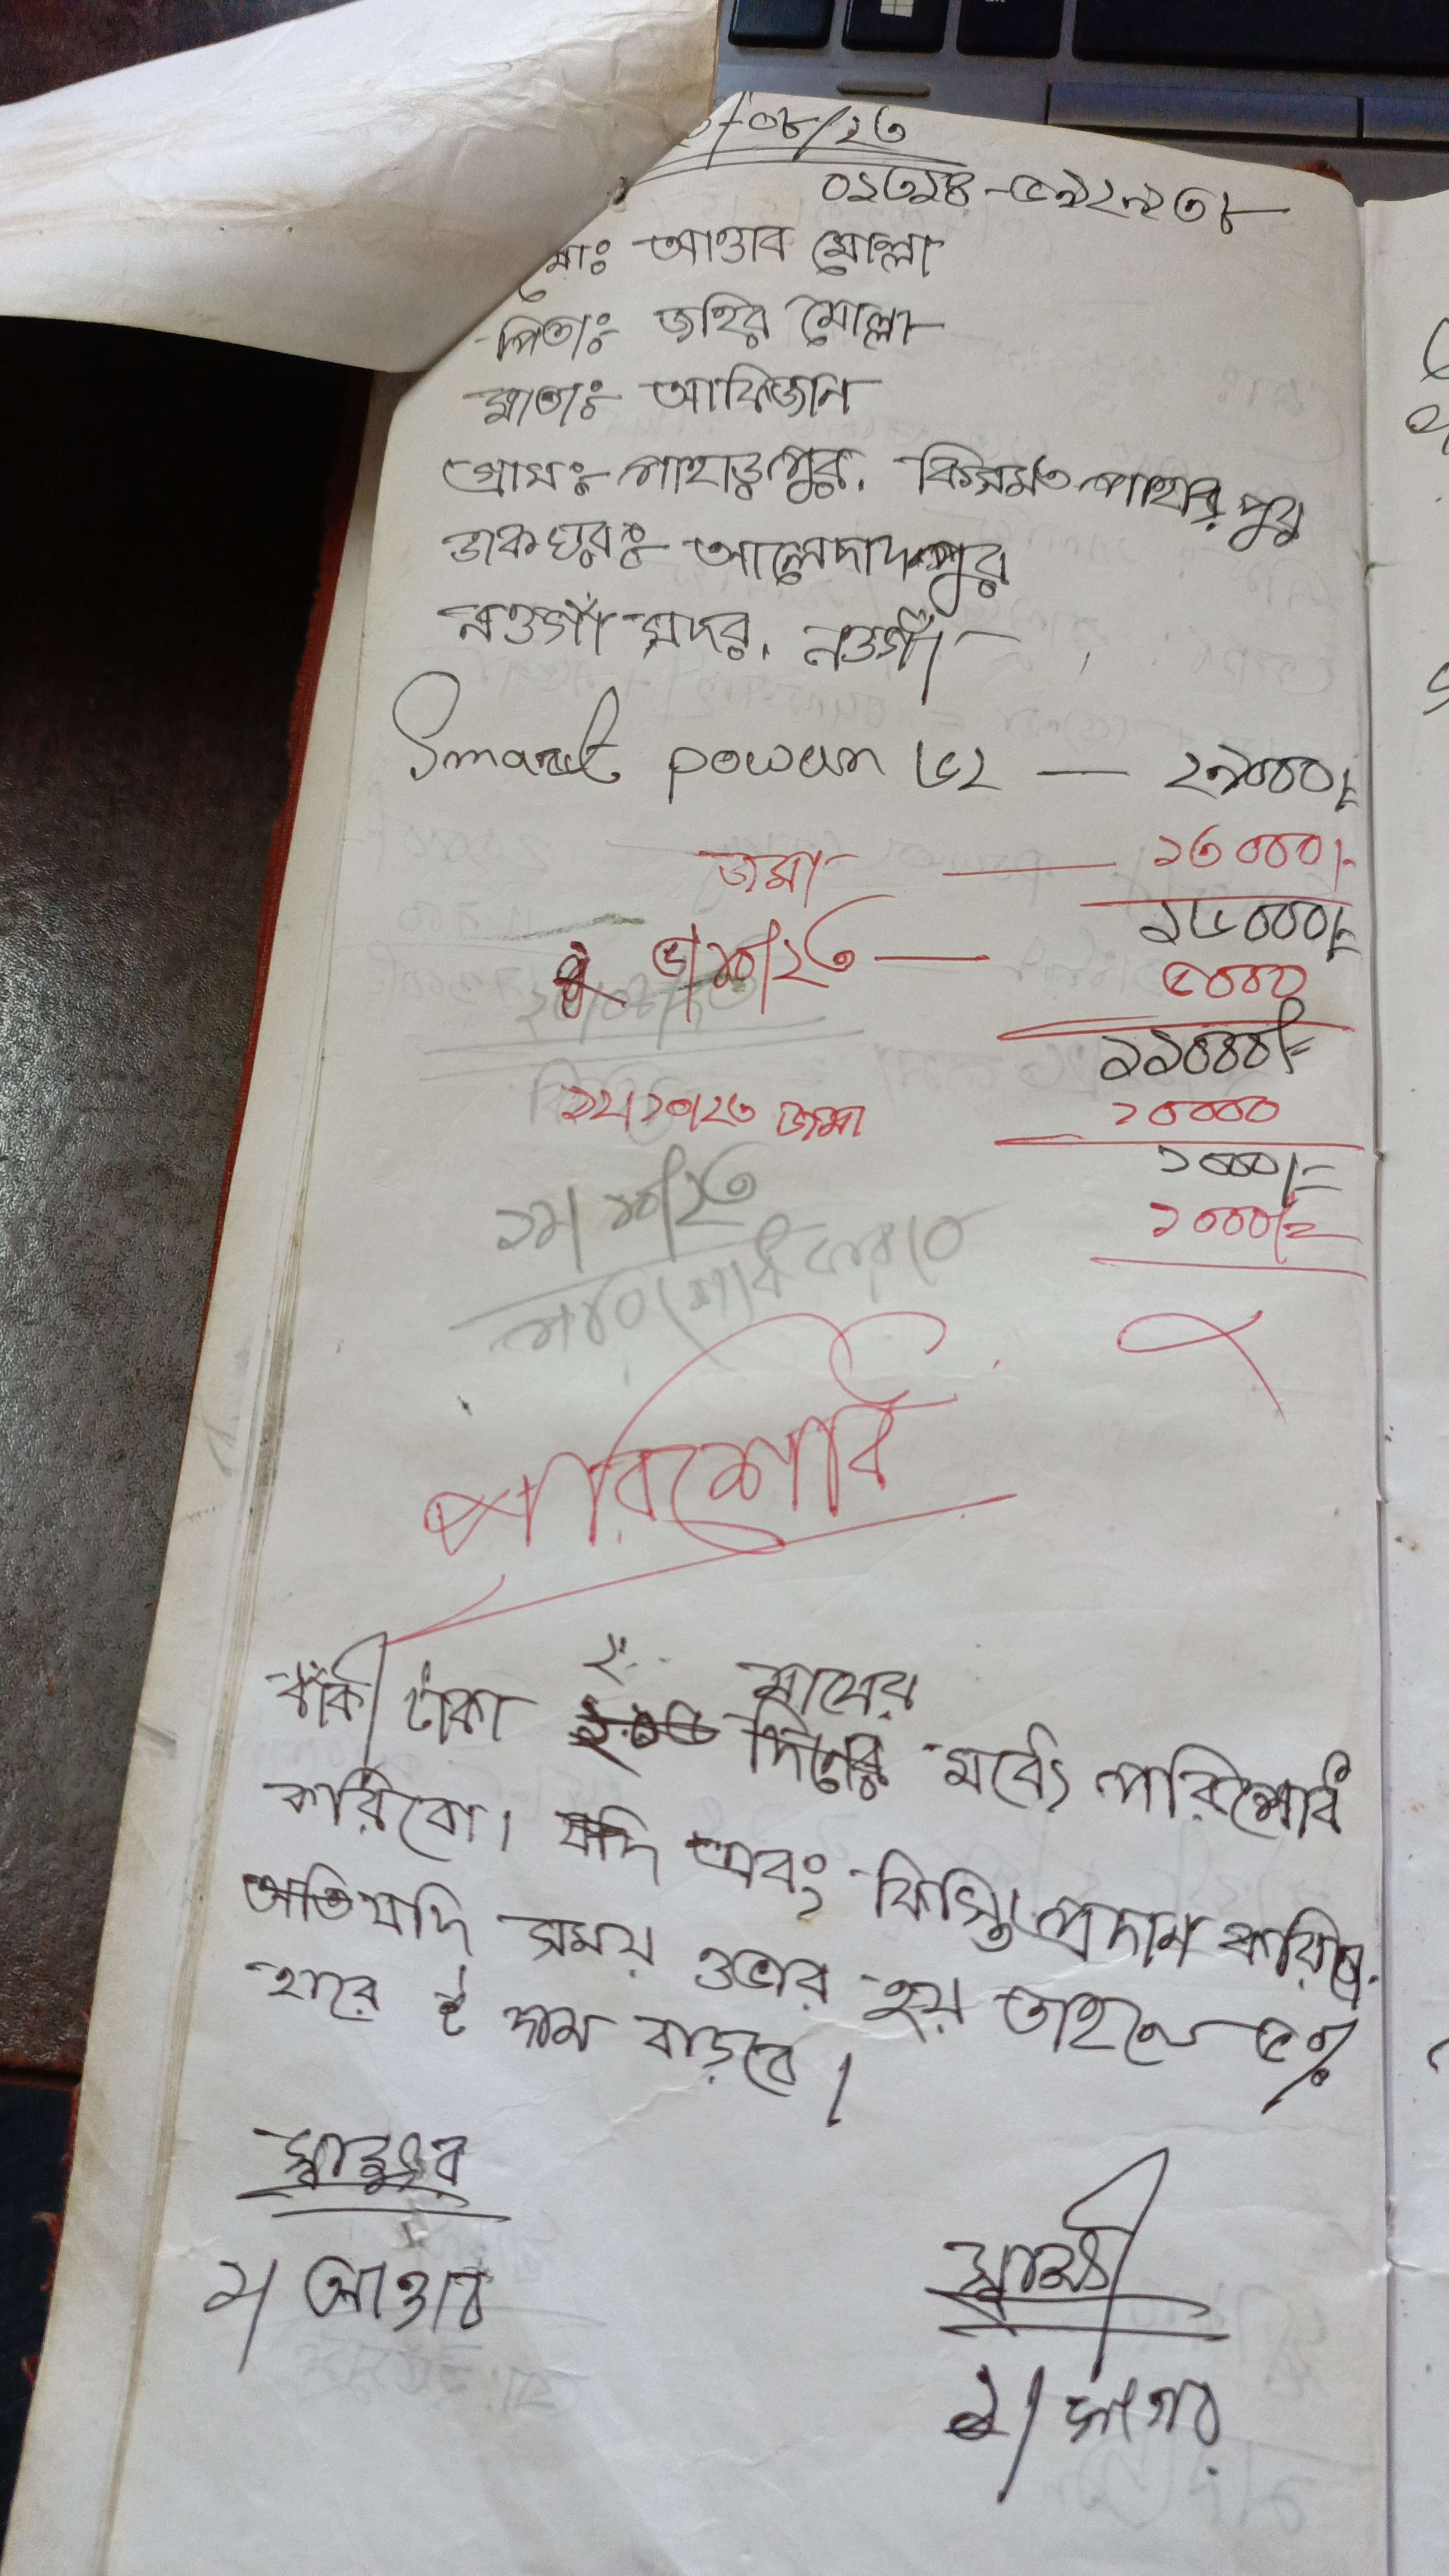 /০৮/২৩
০১৩১৪-৫৯২৭২৩৮
মোঃ আত্তাব মোল্লা
পিতাঃ জহির মোল্লা
মাতাঃ আফিজান
গ্রামঃ পাহাড়পুর, কিসমত পাহাড়পুর
ডাকঘরঃ আলেদাদপুর
নওগাঁ সদর, নওগাঁ
Smart power ৬২ — ২৯০০০/=
জমা — ১৩০০০/=
১৬০০০/=
৬/১০/২৩ — ৫০০০
১১০০০/=
১২/১০/২৩ জমা ১০০০০
১০০০/=
১০০০/=
পরিশোধ
২ মাসের
বাকী টাকা দিনের মধ্যে পরিশোধ
করিবো। যদি এবং কিস্তি প্রদান করিব
যদি সময় ওভার হয় তাহলে ৫%
হারে দাম বাড়বে।
স্বাক্ষর
১/ আত্তাব
স্বাক্ষী
১/ সাগর